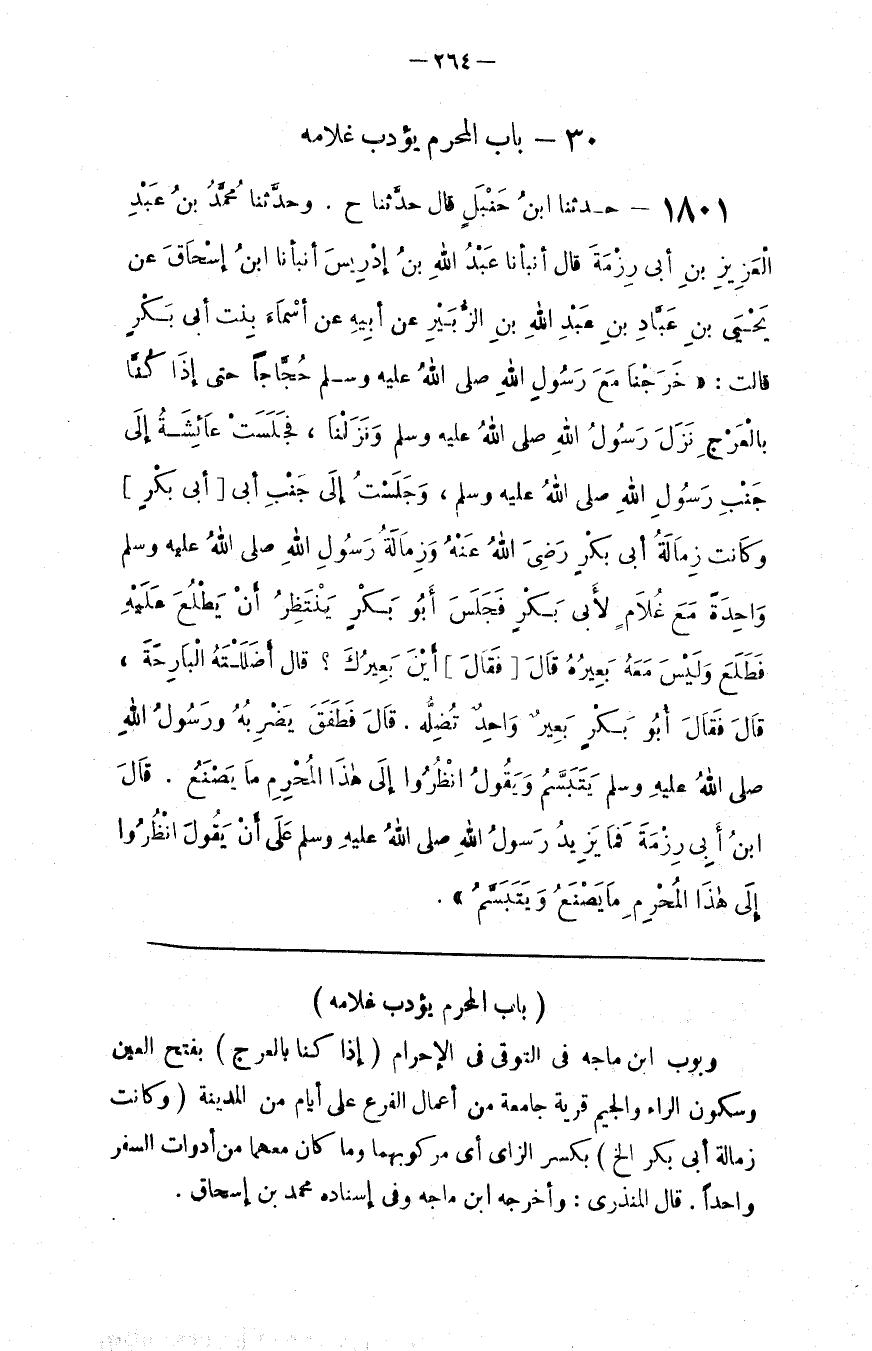 — ٢٦٤ —
٣٠ — باب المحرم يؤدب غلامه
١٨٠١ — حـدثنا ابنُ حَنْبَلٍ قال حدَّثنا ح . وحدَّثنا مُحمَّدُ بنُ عَبْدِ
الْعَزِيزِ بنِ أبى رِزْمَةَ قال أنبأنا عَبْدُ اللهِ بنُ إدْرِيسَ أنبأنا ابنُ إسْحَاقَ عن
يَحْـيَى بنِ عَبَّادِ بنِ عبْدِ اللهِ بنِ الزُّبَيْرِ عن أبيهِ عن أسْمَاءَ بِنت أبى بَـكْرٍ
قالت : « خَرَجْنَا مَعَ رَسُولِ اللهِ صلى اللهُ عليه وسـلم حُجَّاجاً حتى إذَا كُنَّا
بالْعَرْجِ نَزَلَ رَسُولُ اللهِ صلى اللهُ عليه وسلم وَنَزَلْنَا ، فَجَلَسَتْ عَائِشَـةُ إلَى
جَنْبِ رَسُولِ اللهِ صلى اللهُ عليه وسلم ، وَجَلَسْتُ إلَى جَنْبِ أبى [ أبى بَكْرٍ ]
وكَانت زِمَالَةُ أبى بكْرٍ رَضِىَ اللهُ عَنْهُ وَزِمالَةُ رَسُولِ اللهِ صلى اللهُ عليه وسلم
وَاحِدَةً مَعَ غُلَامٍ لأبى بَـكْرٍ فَجَلَسَ أَبُو بَـكْرٍ يَنْتَظِرُ أنْ يَطْلُعَ عَلَيْهِ
فَطَلَعَ وَلَيْسَ مَعَهُ بَعِيرُهُ قالَ [ فَقَالَ ] أيْنَ بَعِيرُكَ ؟ قال أضْلَلْـتُهُ الْبَارِحَةَ ،
قالَ فَقَالَ أَبُو بَـكْرٍ بَعِيرٌ وَاحِدٌ تُضِلُّه . قالَ فَطَفَقَ يَضْرِبُهُ ورَسُولُ اللهِ
صلى اللهُ عليهِ وسلم يَتَبَسَّمُ وَيَقُولُ انْظُرُوا إلَى هٰذَا الْمُحْرِمِ مَا يَصْنَعُ . قالَ
ابنُ أَبِى رِزْمَةَ فمَا يَزِيدُ رَسولُ اللهِ صلى اللهُ عليهِ وسلم عَلَى أنْ يَقُولَ انْظُرُوا
إلَى هٰذَا الْمُحْرِمِ مَا يَصْنَعُ وَيَتَبَسَّمُ » .
( باب المحرم يؤدب غلامه )
وبوب ابن ماجه فى التوقى فى الإحرام ( إذا كنا بالعرج ) بفتح العين
وسكون الراء والجيم قرية جامعة من أعمال الفرع على أيام من المدينة ( وكانت
زمالة أبى بكر الخ ) بكسر الزاى أى مركوبهما وما كان معهما من أدوات السفر
واحداً . قال المنذرى : وأخرجه ابن ماجه وفى إسناده محمد بن إسحاق .